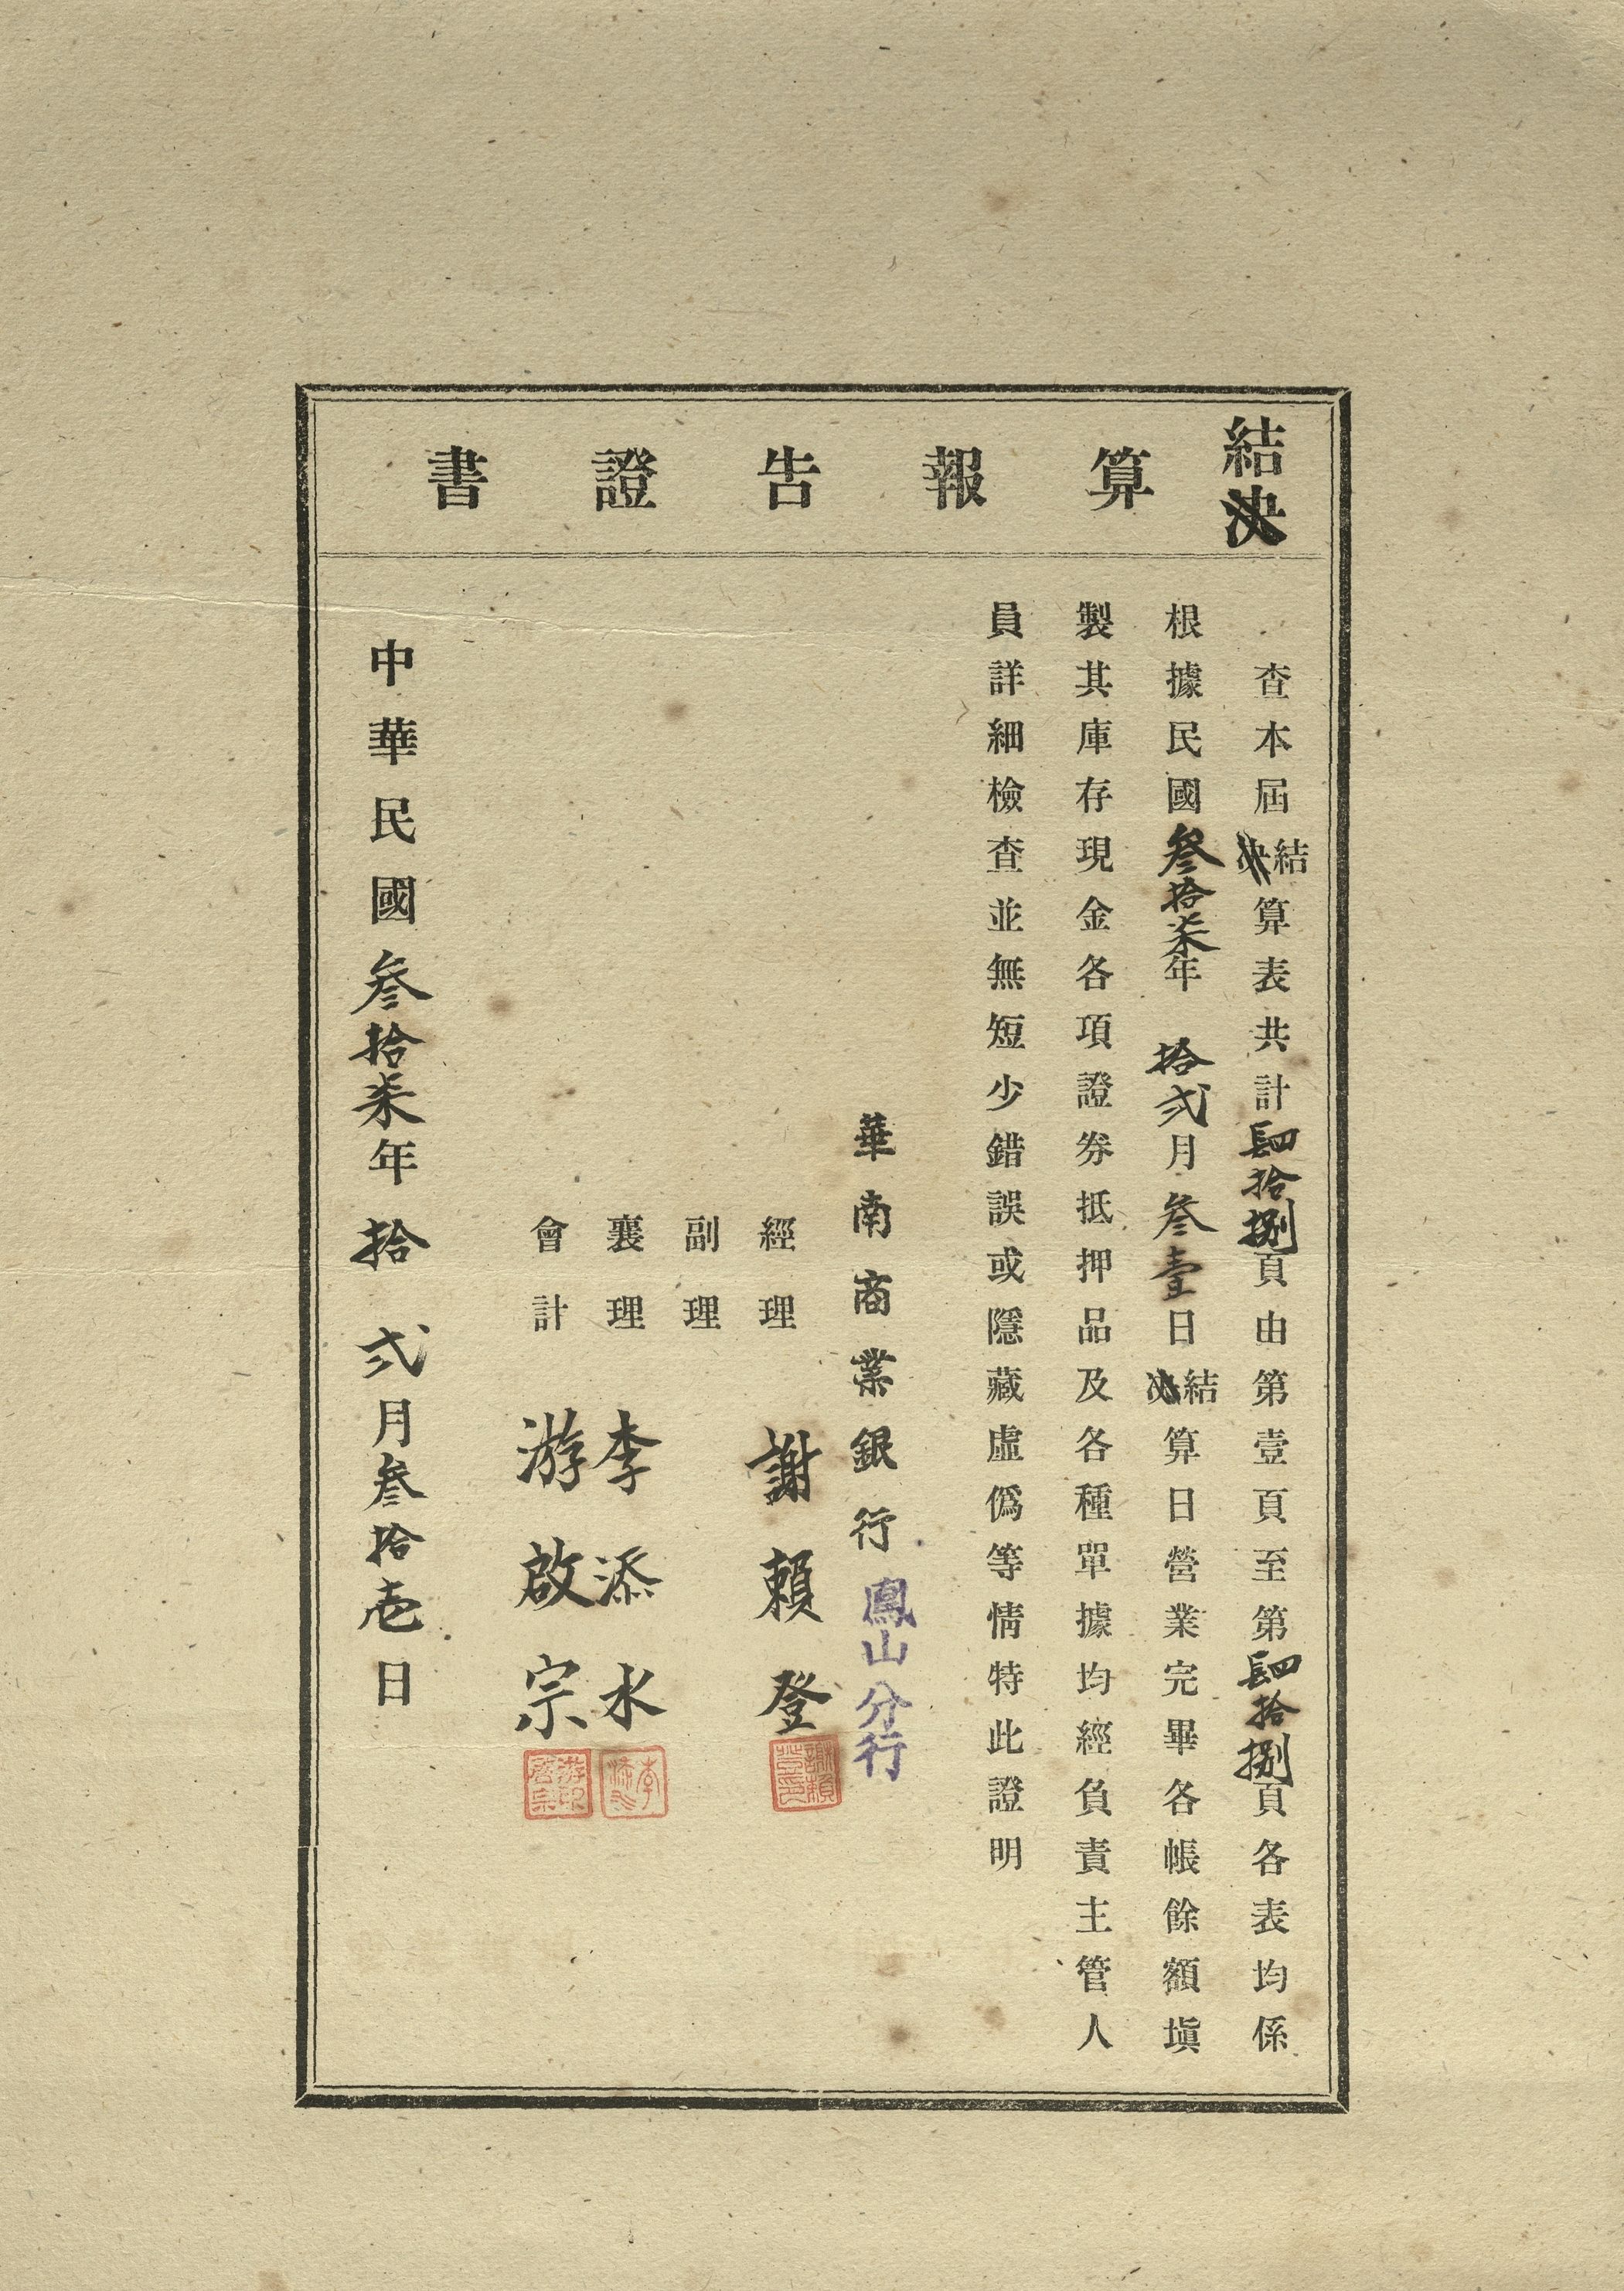 結決算報告證書
查本屆結決算表共計肆拾捌頁由第壹頁至第肆拾捌頁各表均係
根據民國叁拾柒年拾弍月叁壹日結決算日營業完畢各帳餘額塡
製其庫存現金各項證券抵押品及各種單據均經負責主管人
員詳細檢查並無短少錯誤或隱藏虛僞等情特此證明
華南商業銀行鳳山分行
經理 謝賴登
謝賴登印
副理
襄理 李添水
李添水
會計 游啟宗
游印啓宗
中華民國叁拾柒年拾弍月叁拾壱日